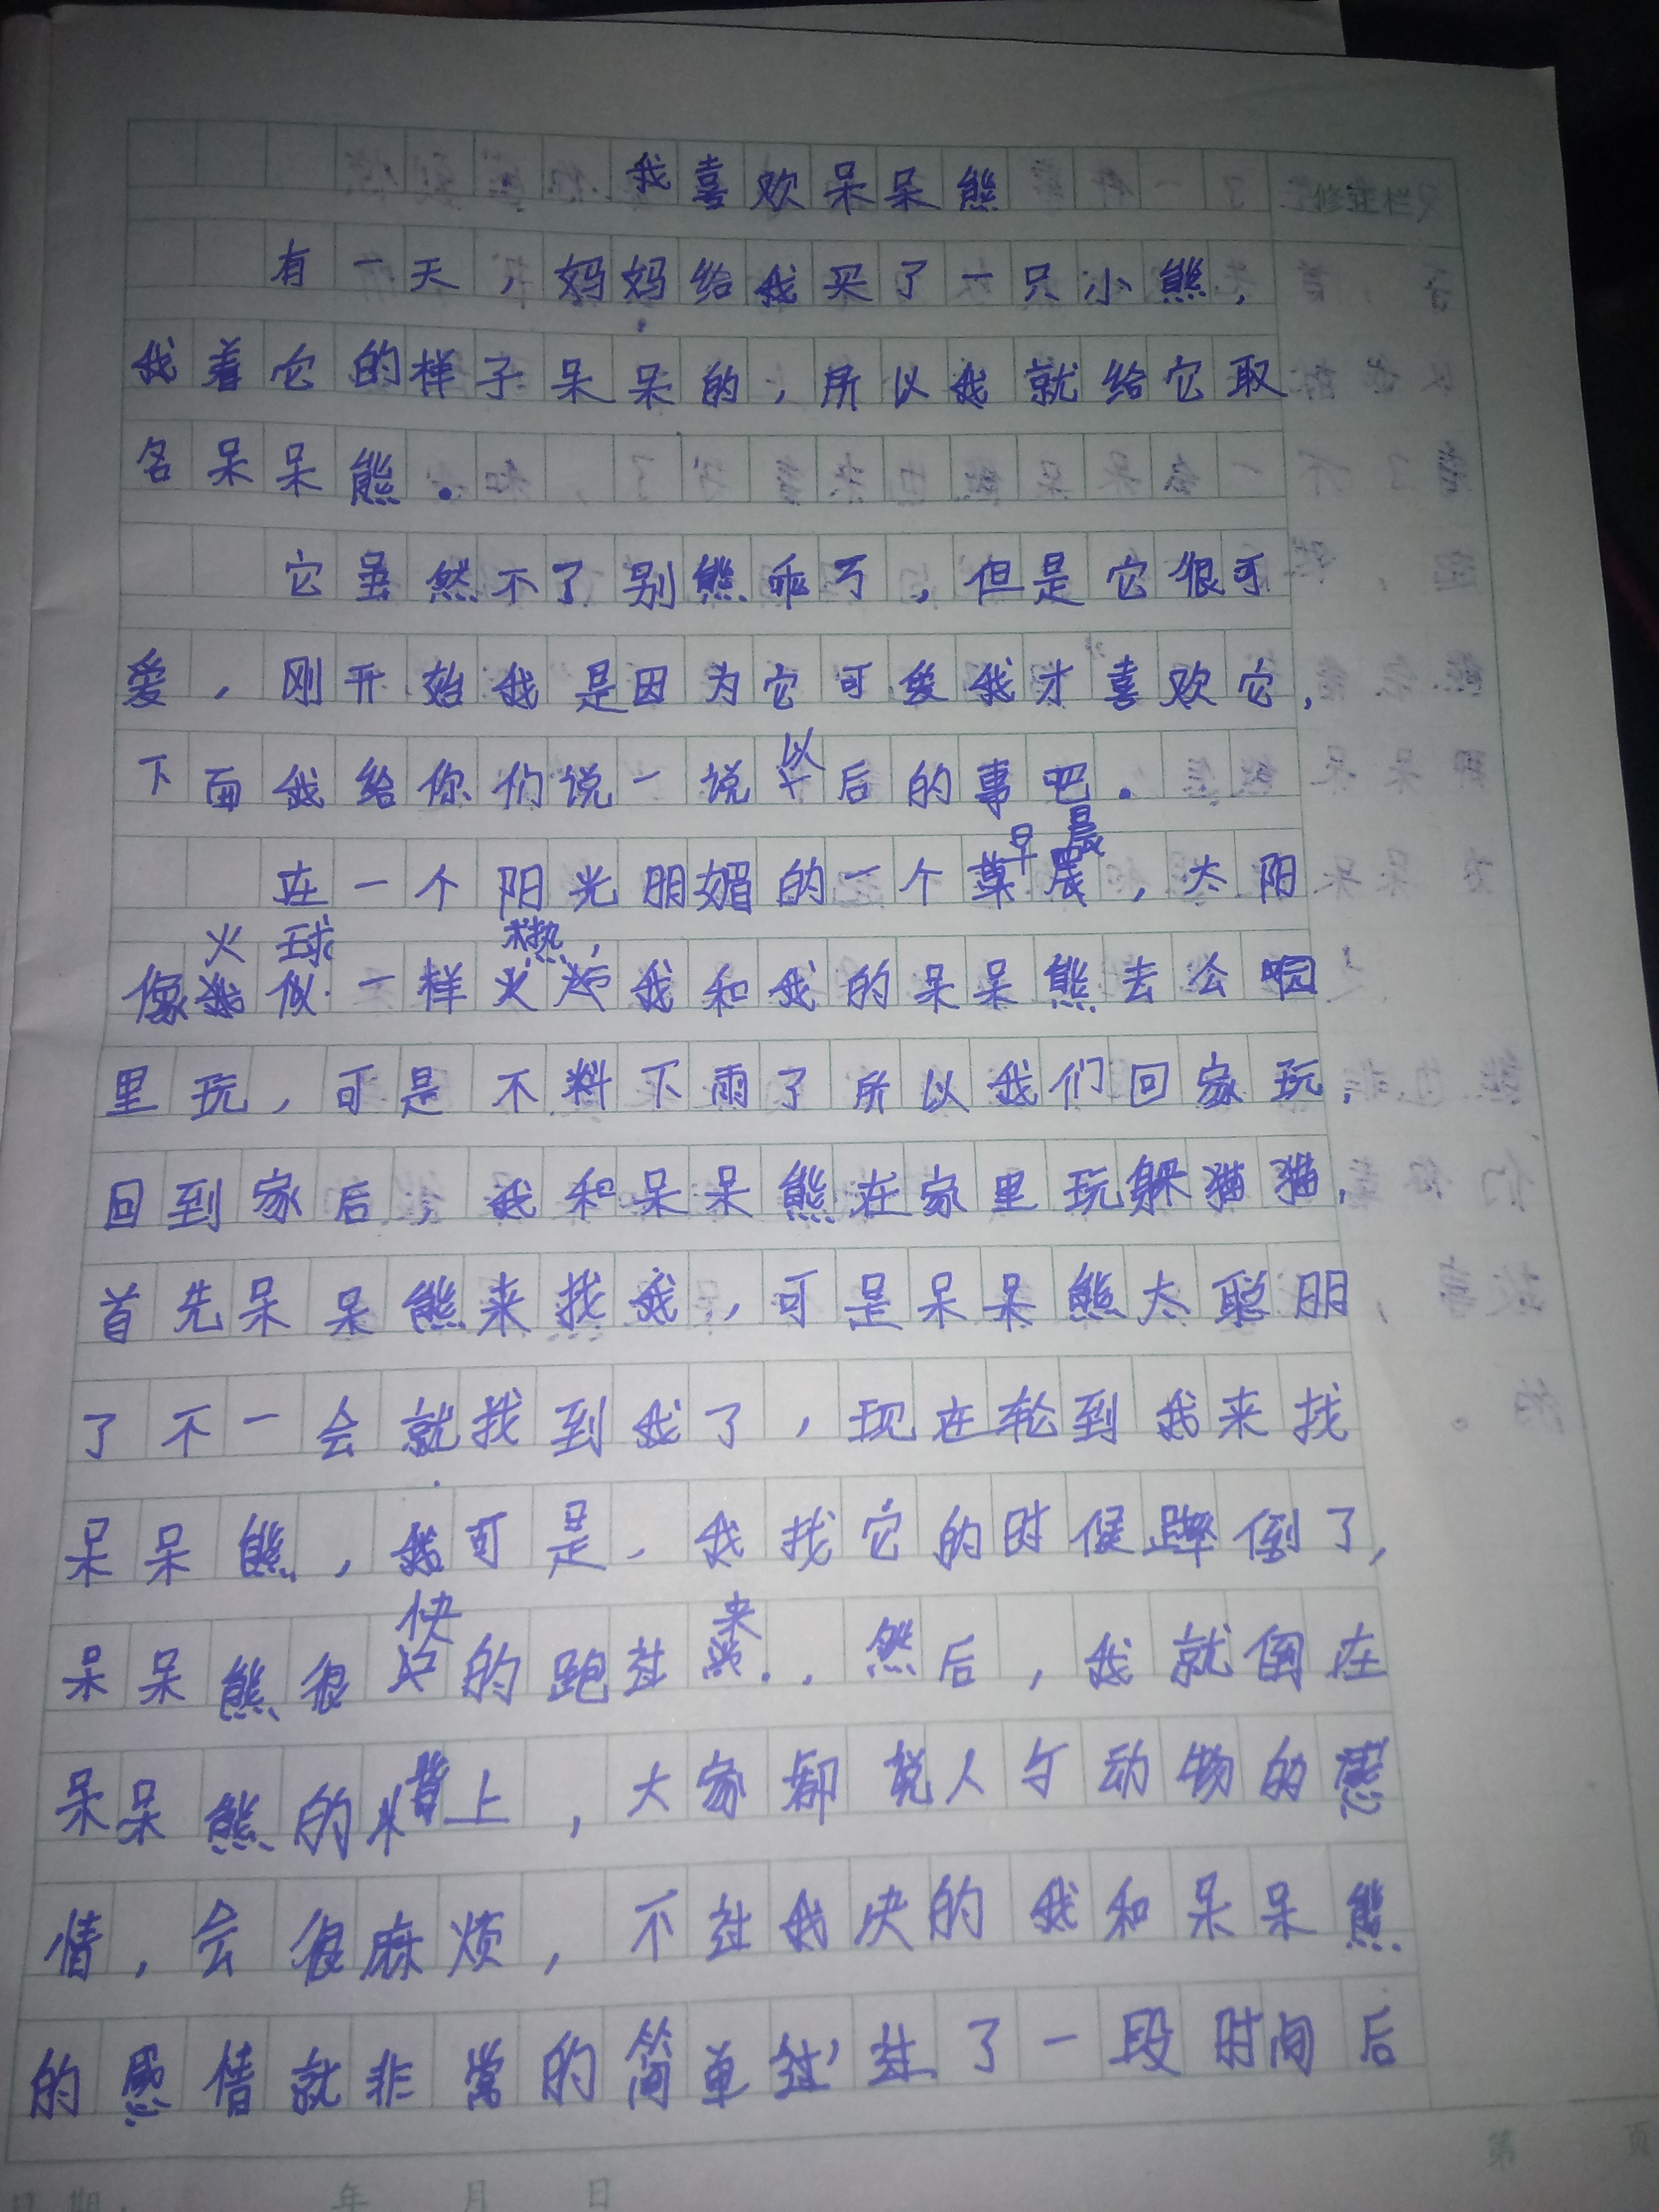 我喜欢呆呆熊
修正栏
有一天，妈妈给我买了一只小熊，
我着它的样子呆呆的，所以我就给它取
名呆呆熊。
它虽然不了别熊乖丂，但是它很可
爱，刚开始我是因为它可爱我才喜欢它，
下面我给你们说一说以后的事吧。
在一个阳光明媚的一个早晨，太阳
像火球一样热，我和我的呆呆熊去公园
里玩，可是不料下雨了所以我们回家玩，
回到家后，我和呆呆熊在家里玩躲猫猫，
首先呆呆熊来找我，可是呆呆熊太聪明
了不一会就找到我了，现在轮到我来找
呆呆熊，可是、我找它的时候蹿倒了，
呆呆熊很快的跑过来.，然后，我就倒在
呆呆熊的背上，大家都说人与动物的感
情，会很麻烦，不过我决的我和呆呆熊
的感情就非常的简单过，过了一段时间后
日期： 年 月 日
第 页